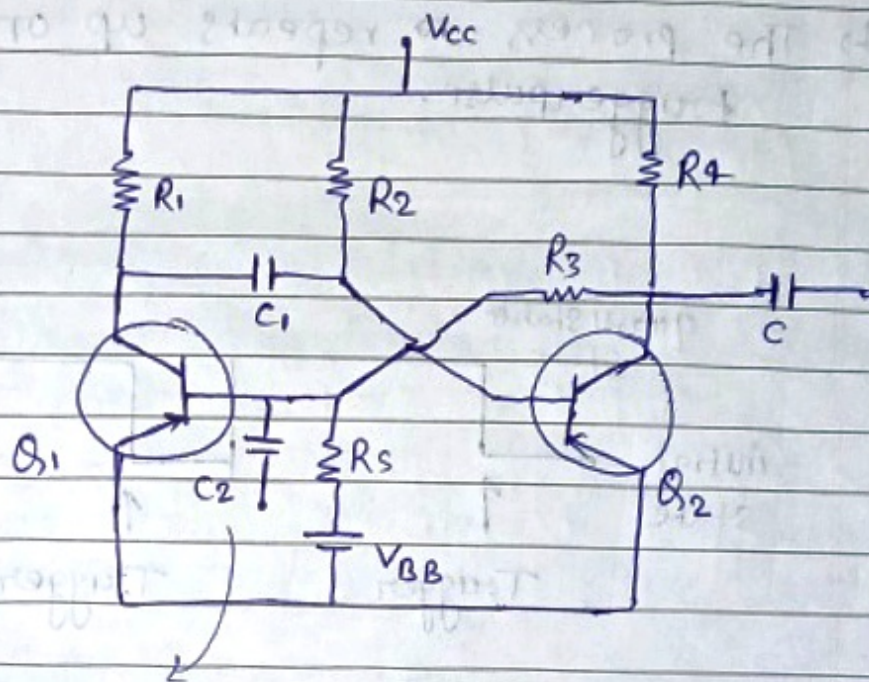 Vcc
R1
R2
R4
R3
C1
C
Q1
C2
R5
Q2
VBB